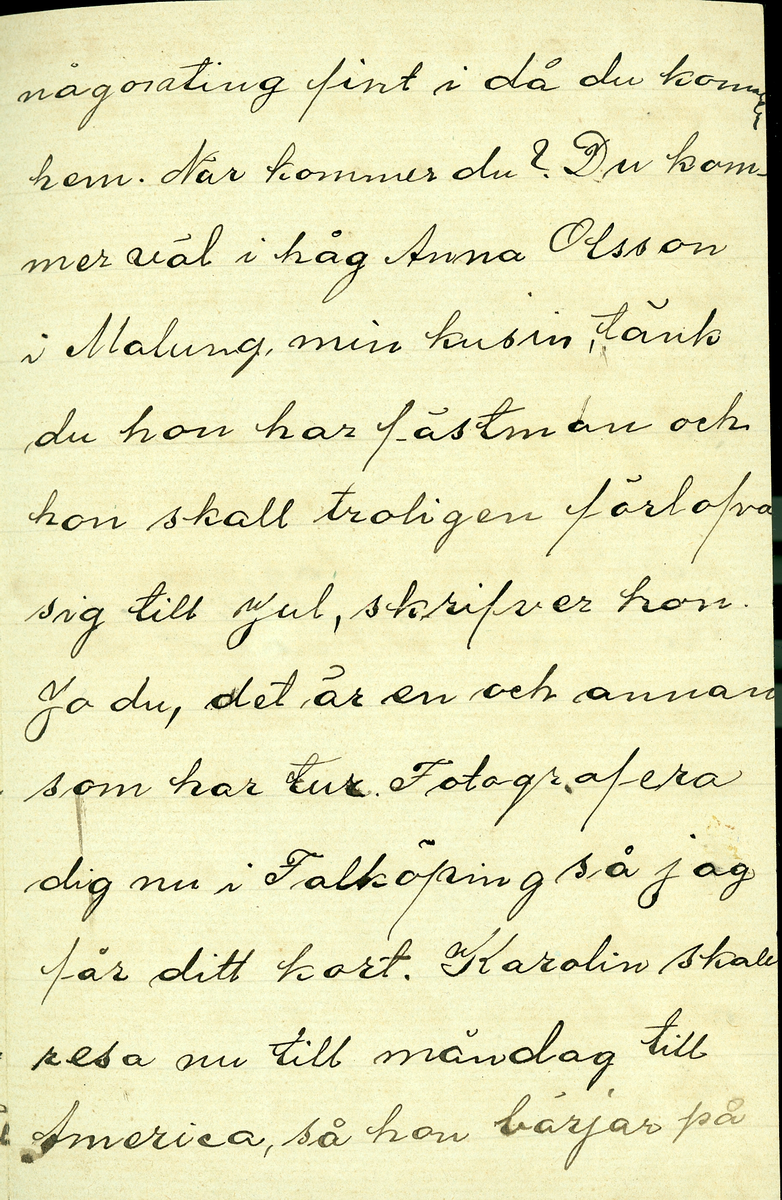 någonting fint i då du kommer
hem. När kommer du? Du kom-
mer väl i håg Anna Olsson
i Malung, min kusin, tänk
du hon har fästman och
hon skall troligen förlofva
sig till Jul, skrifver hon.
Jo du, det är en och annan
som har tur. Fotografera
dig nu i Falköping så jag
får ditt kort. Karolin skall
resa nu till måndag till
America, så hon bärjar på